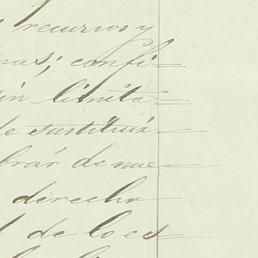 recursos y
ras; confi=
sin limita=
de sustitui
brar de nue=
derecho
de lo es=